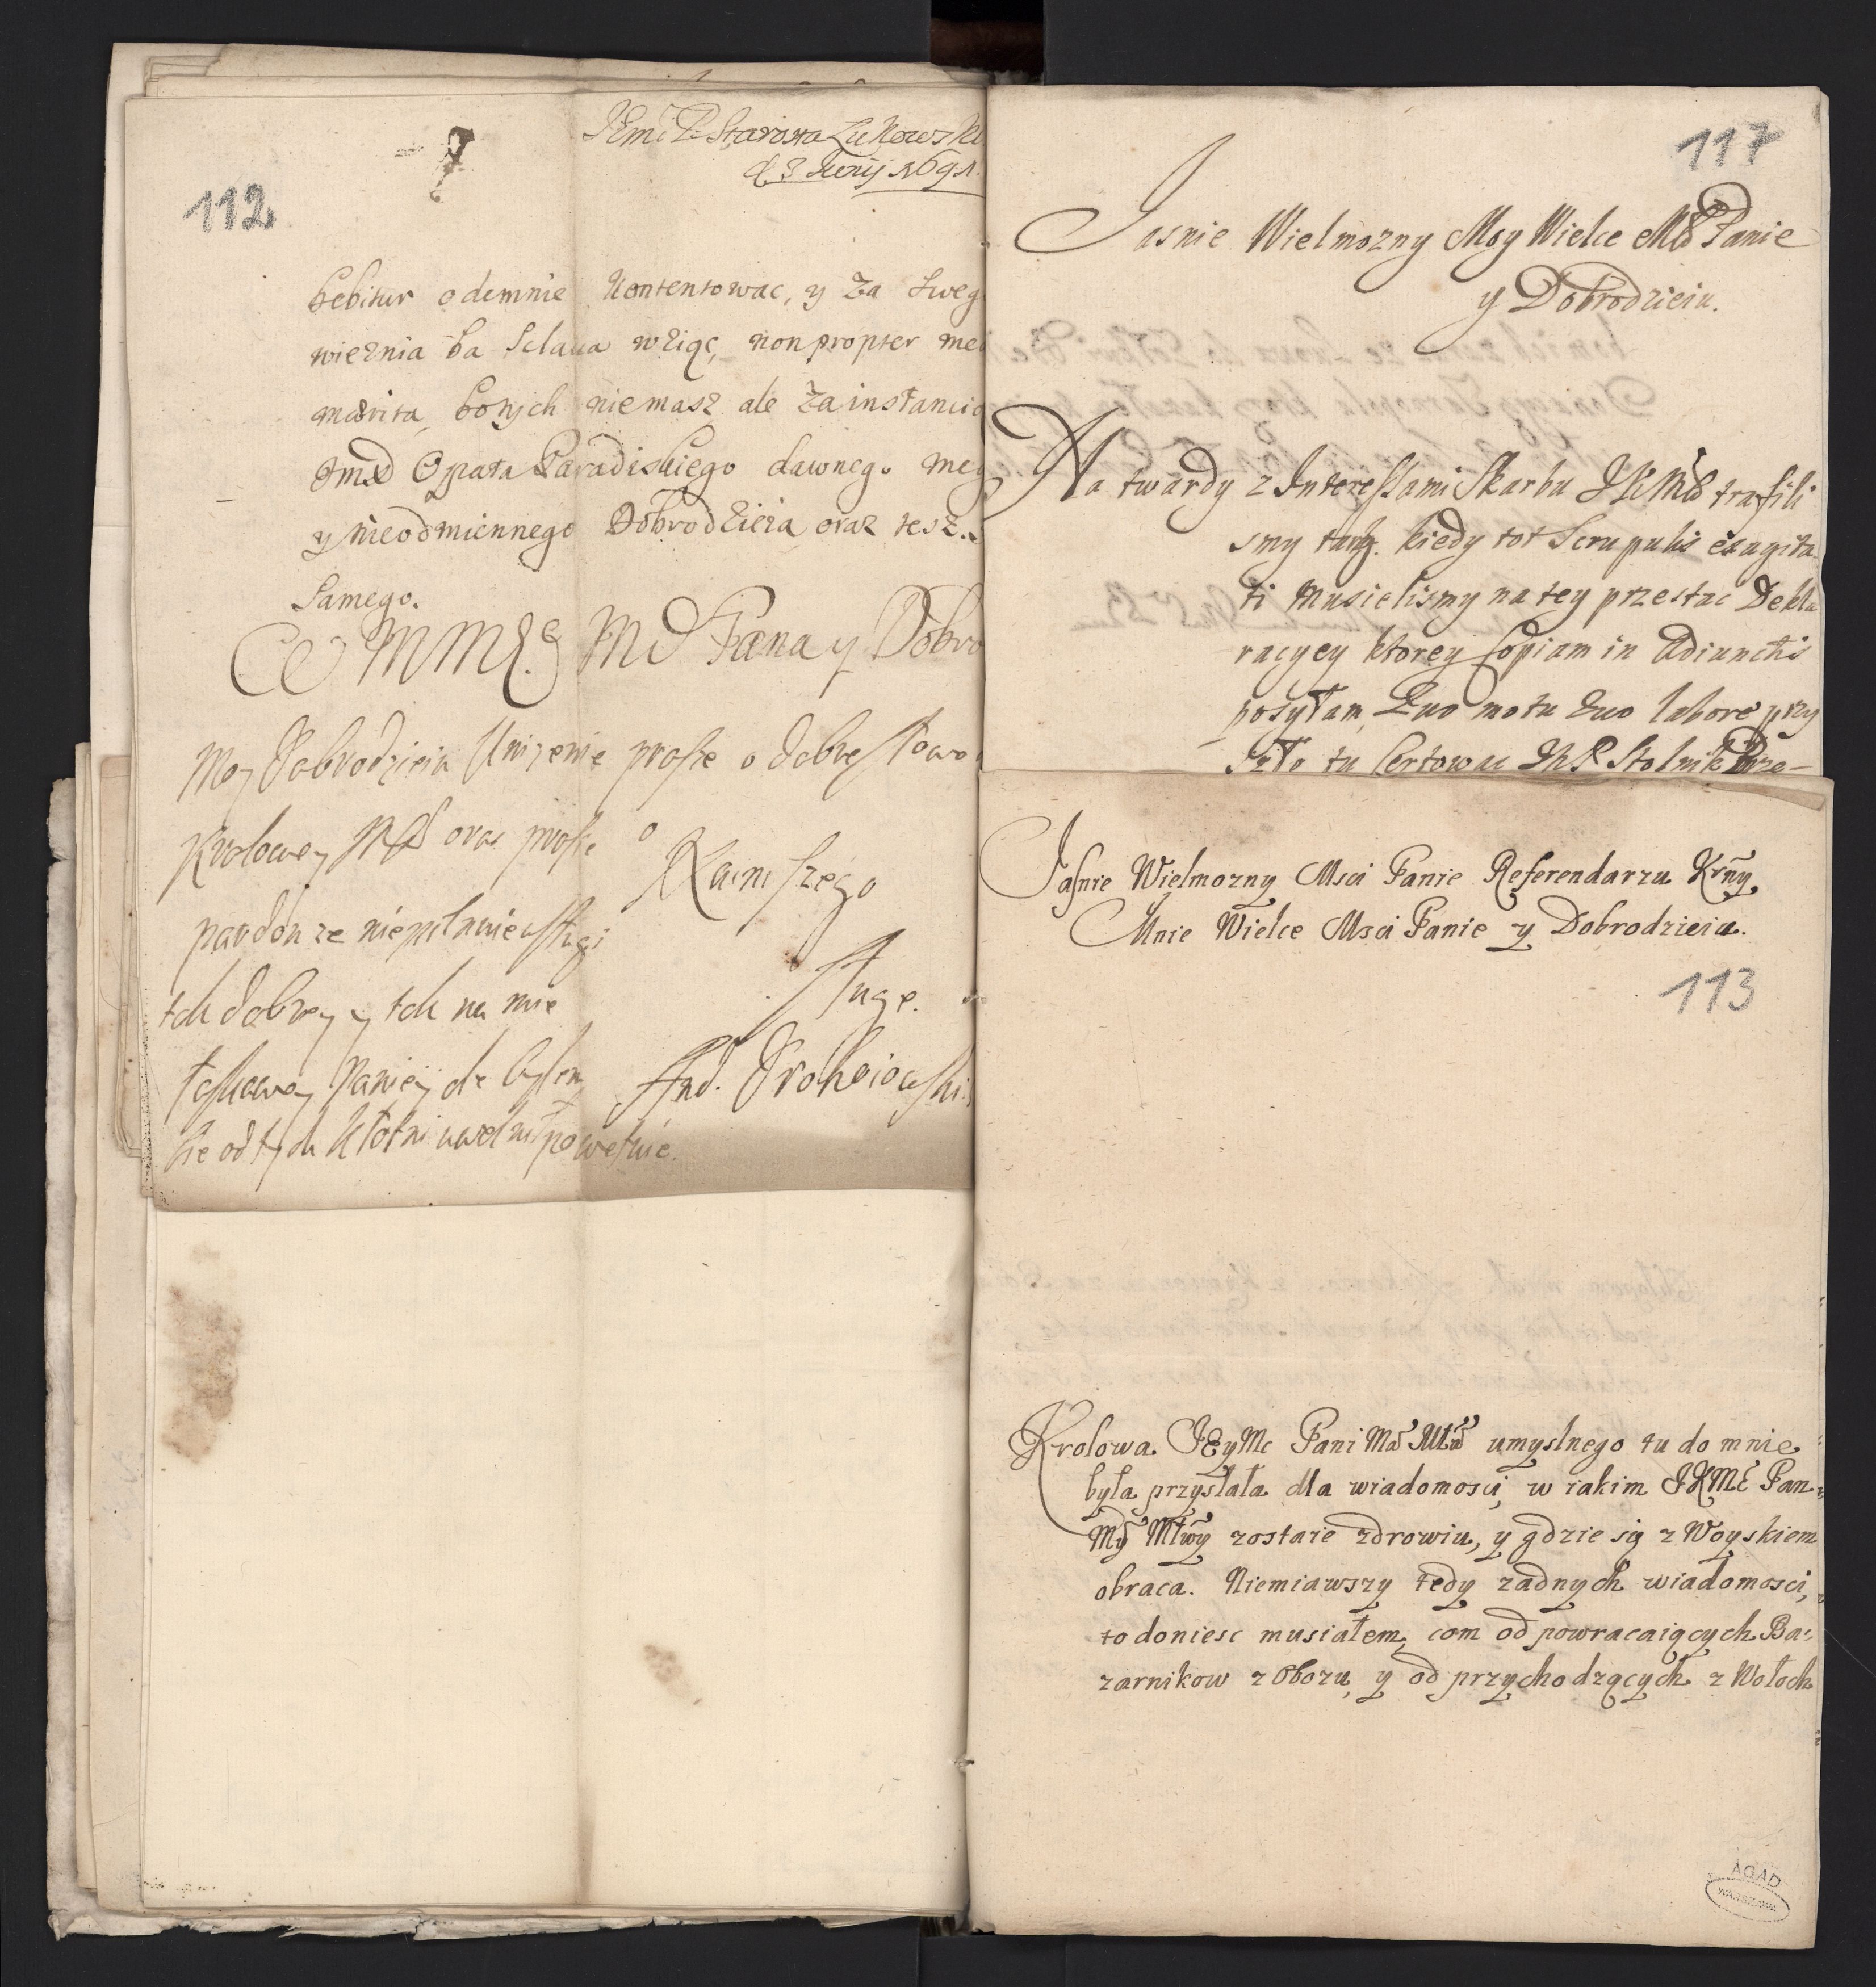 112
JEmci P. Starosta Lukowski
d. 3 Junij 1691.
bebitur odemnie Kontentowac, y za sweg
wieznia ba Sclaua wziąc, non propter mea
merita, botych niemasz ale za instancią
Jmći Opata Paradiskiego dawnego meg
y nieodmiennego Dobrodzieia oraz tesz
Samego.
MMM Pana y Dobro
Moy Dobrodzieiu Unizenie prosze o dobre słowo
Krolowey JMći oraz prosze o
pardon ze niepilnie
tak dobrey y tak na mie
łaskawey Paniey
sie od tych Kłotni uwolnił powetuie.
Naniszego
Sługe.
And.
117
Jasnie Wielmozny Moy Wielce Mći Panie
y Dobrodzieiu.
Na twardy z Interessami Skarbu JKMći trafili
smy targ. kiedy tot Scrupulis exagita
ti Musielismy na tey przestac Dekla
racyey ktorey Copiam in Adiunctis
posyłam, Suo motu suo labore przy
szło tu Certowac JhP Stolnik Prze-
Jasnie Wielmozny Msci Panie Referendarzu Krny,
Mnie Wielce Msci Panie y Dobrodzieiu.
113
Krolowa JEyMc Pani Ma Mła umyslnego tu do mnie
była przysłała dla wiadomosci, w iakim JKMć Pan
My Młwy zostaie zdrowiu, y gdzie się z Woyskiem
obraca. Niemiawszy tedy zadnych wiadomosci,
to doniesc musiałem, com od powracaiących Ba-
zarnikow z Obozu, y od przychodzących z Wołoch
AGAD
WARSZAWA